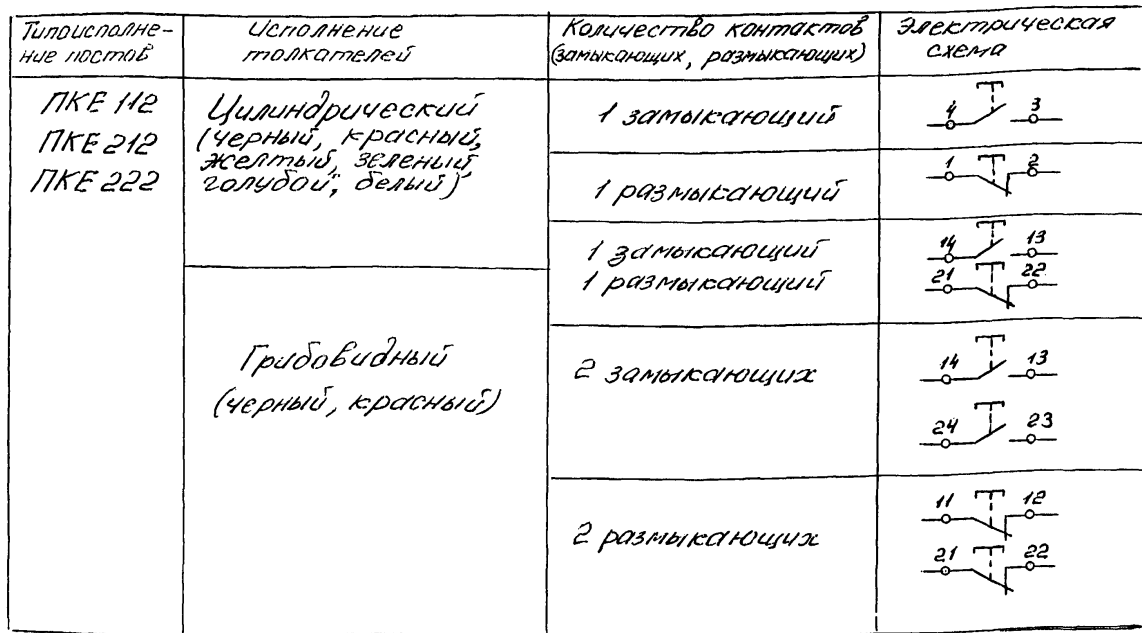 Типоисполне-
ние постов
Исполнение
толкателей
Количество контактов
(замыкающих, размыкающих)
Электрическая
схема
ПКЕ 112
ПКЕ 212
ПКЕ 222
Цилиндрический
(черный, красный,
желтый, зеленый,
голубой, белый)
Грибовидный
(черный, красный)
1 замыкающий
4 3
1 размыкающий
1 2
1 замыкающий
1 размыкающий
14 13
21 22
2 замыкающих
14 13
24 23
2 размыкающих
11 12
21 22